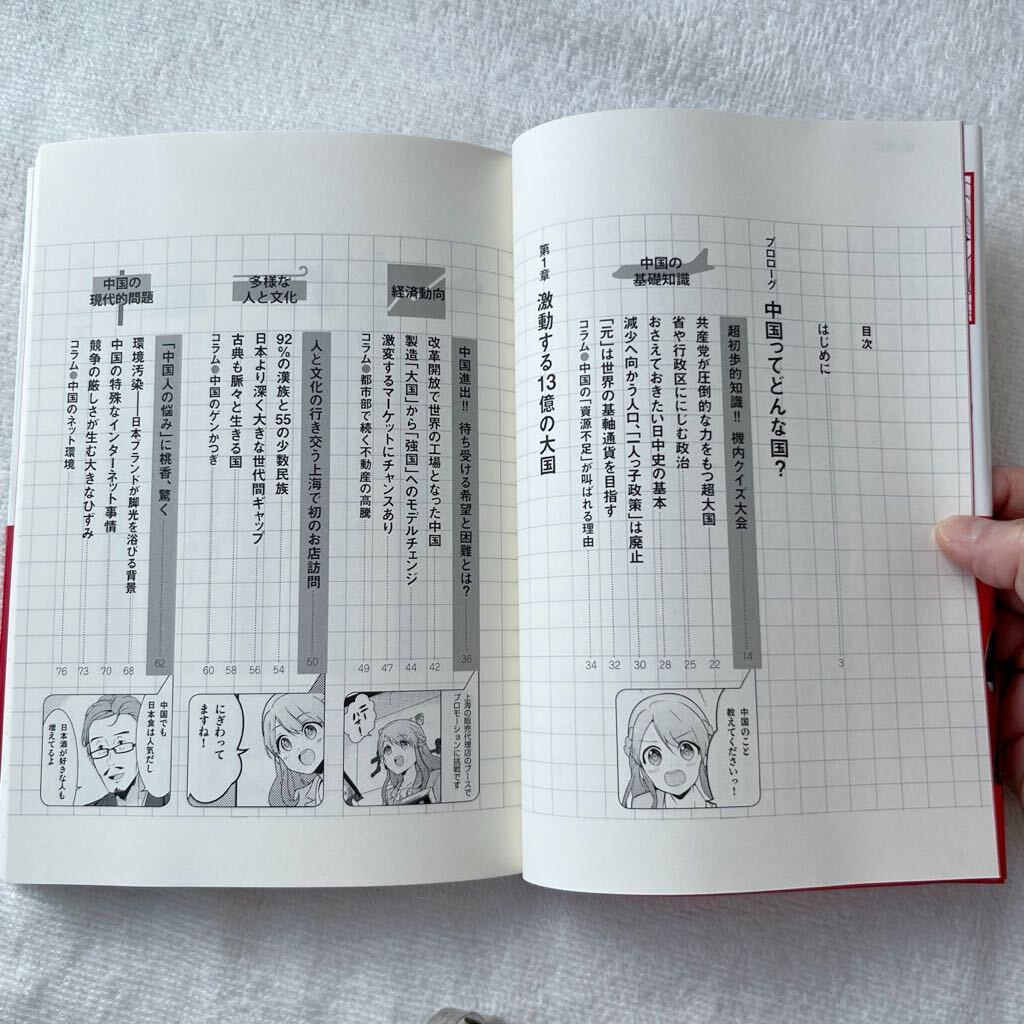 目次
はじめに 3
プロローグ 中国ってどんな国?
中国の
基礎知識
超初歩的知識!! 機内クイズ大会 14
共産党が圧倒的な力をもつ超大国 22
省や行政区ににじむ政治 25
おさえておきたい日中史の基本 28
減少へ向かう人口、「一人っ子政策」は廃止 30
「元」は世界の基軸通貨を目指す 32
コラム●中国の「資源不足」が叫ばれる理由 34
中国のこと
教えてくださいっ!
第1章 激動する13億の大国
経済動向
中国進出!! 待ち受ける希望と困難とは? 36
改革開放で世界の工場となった中国 42
製造「大国」から「強国」へのモデルチェンジ 44
激変するマーケットにチャンスあり 47
コラム●都市部で続く不動産の高騰 49
上海の販売代理店のブースで
プロモーションに挑戦です
ニーハオ
多様な
人と文化
人と文化の行き交う上海で初のお店訪問 50
92%の漢族と55の少数民族 54
日本より深く大きな世代間ギャップ 56
古典も脈々と生きる国 58
コラム●中国のゲンかつぎ 60
にぎわって
ますね!
中国の
現代的問題
「中国人の悩み」に桃香、驚く 62
環境汚染――日本ブランドが脚光を浴びる背景 68
中国の特殊なインターネット事情 70
競争の厳しさが生む大きなひずみ 73
コラム●中国のネット環境 76
中国でも
日本食は人気だし
日本酒が好きな人も
増えてるよ